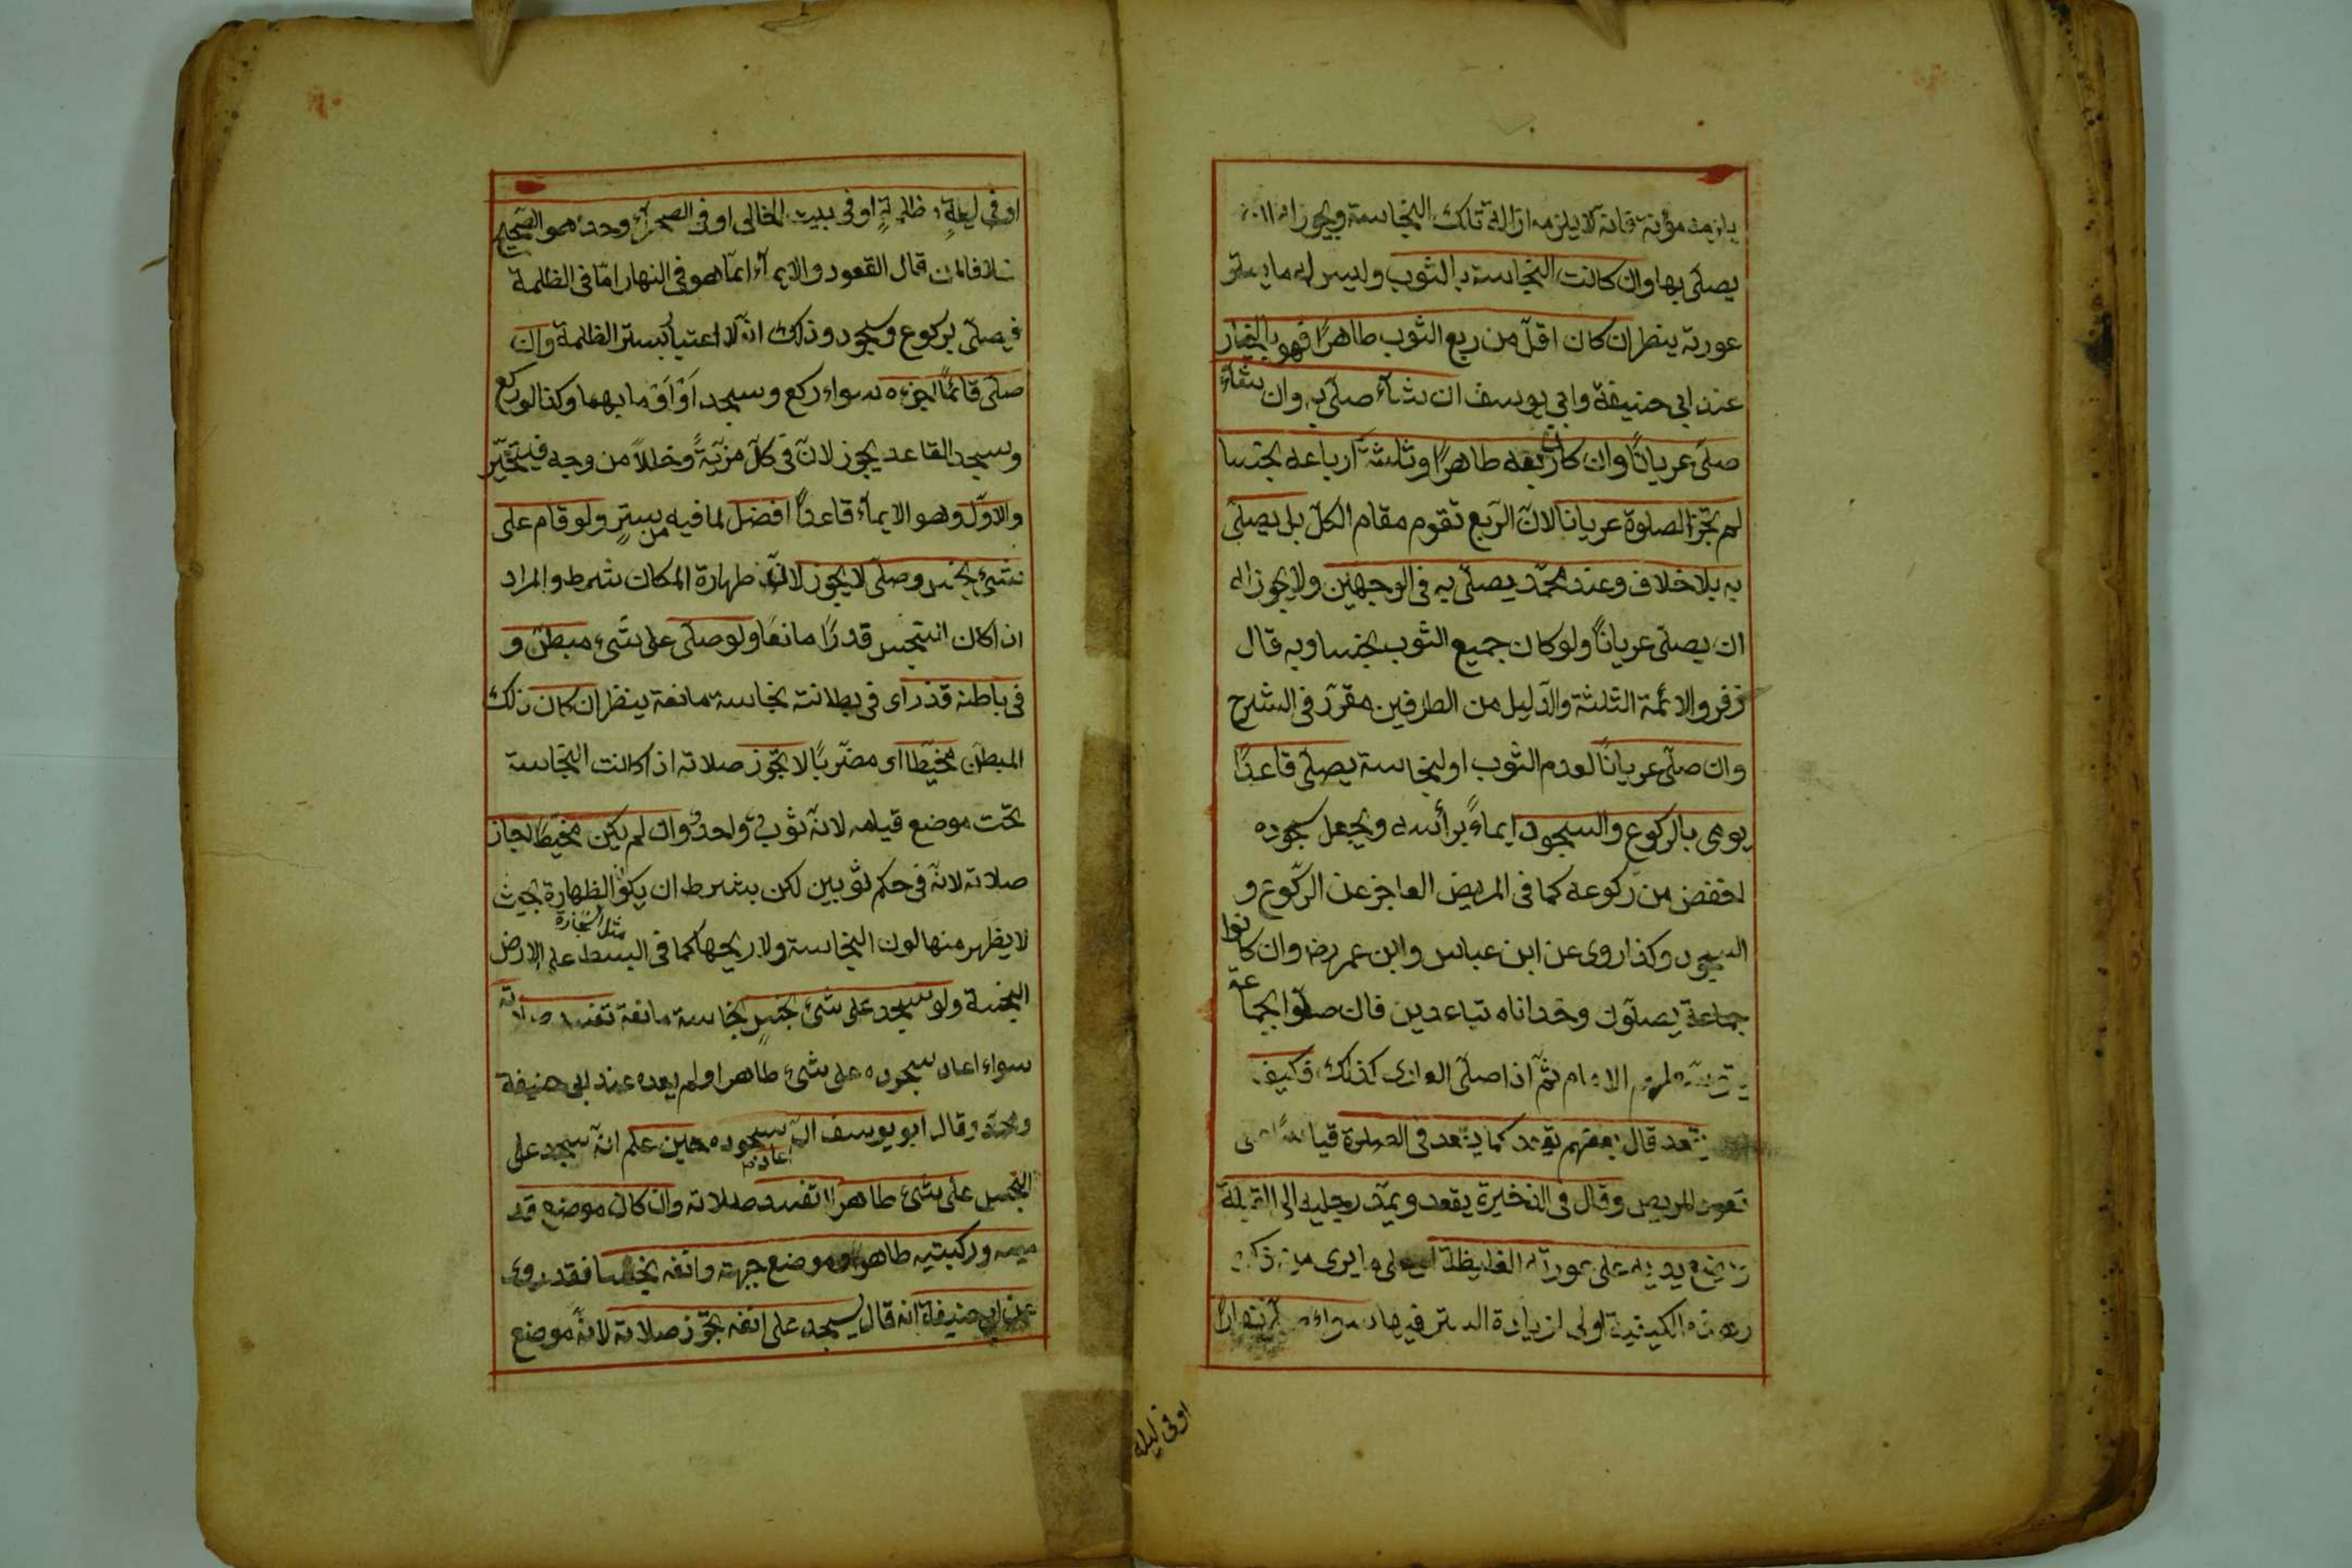 يلزمه مؤنة فانه لا يلزمه ازالة تلك النجاسة ويجوز له ان
يصلّى بها وان كانت النجاسة بالثوب وليس له ما يستر
عورته ينظر ان كان اقلّ من ربع الثوب طاهرًا فهو بالخيار
عند ابي حنيفة وابي يوسف ان شآء صلّى به وان شآء
صلّى عريانًا وان كان ربعه طاهرًا وثلثة ارباعه نجسا
لم تجز الصلوة عريانا لانّ الرّبع تقوم مقام الكلّ بل يصلّى
به بلا خلاف وعند محمّد يصلّى به فى الوجهين ولا يجوز له
ان يصلّى عريانًا ولو كان جميع الثوب نجسا وبه قال
زفر والائمّة الثلثة والدّليل من الطرفين مقرّر فى الشرح
وان صلّى عريانًا لعدم الثوب او لنجاسة يصلّى قاعدًا
يومى بالركوع والسجود ايماءً برأسه ويجعل سجوده
اخفض من ركوعه كما فى المريض العاجز عن الرّكوع و
السجود وكذا روى عن ابن عباس وابن عمر رضه وان كانوا
جماعة يصلّون وحدانا متباعدين فان صلّوا بجماعة
يتوسّطهم الامام ثمّ اذا صلّى العارى كذلك فكيف
يقعد قال بعضهم يقعد كما يقعد فى الصلوة قياسًا على
قعود المريض وقال فى الذخيرة يقعد ويمدّ رجليه الى القبلة
ويضع يديه على عورته الغليظة ايرى من
وهذه الكيفية اولى لزيادة الستر فيها سواء صلّى نهارًا
او فى ليلة
او فى ليلةٍ ظلمةٍ او فى بيت خالى او فى الصحرآء وحده هو الصّحيح
خلافا لمن قال القعود والايمآء انّما هو فى النهار امّا فى الظلمة
فيصلّى بركوع وسجود وذلك انّه لا اعتبار بستر الظلمة وان
صلّى قائمًا اجزءه سواء ركع وسجد اَوْ اَوْمَا بهما وكذا لو ركع
وسجد القاعد يجوز لانّ فى كلّ مزيّةً وخللاً من وجه فيتخيّر
والاوّل وهو الايمآء قاعدًا افضل لما فيه من سترٍ ولو قام على
شئ نجس وصلّى لا يجوز لانّ طهارة المكان شرط والمراد
اذا كان النجس قدرًا مانعًا ولو صلّى على شىء مبطّن و
فى باطنه قذر اى فى بطانته نجاسة مانعة ينظر ان كان ذلك
المبطّن مخيّطا اى مضرّبًا لا تجوز صلاته اذا كانت النجاسة
تحت موضع قيامه لانّه ثوب واحد وان لم يكن مخيّطًا جاز
صلاته لانّه فى حكم ثوبين لكن بشرط ان يكون الظهارة بحيث
لا يظهر منها لون النجاسة ولا ريحها كما فى البسط على الارض
النجسة ولو سجد على شئ نجسٍ نجاسة مانعة تفسد صلاته
سواء اعاد سجوده على شئ طاهر او لم يعده عند ابى حنيفة
ومحمّد وقال ابو يوسف ان اعاد سجوده حين علم انّه سجد على
النجس على شئ طاهر لا تفسد صلاته وان كان موضع قد
ميه وركبتيه طاهرًا وموضع جبهته وانفه نجسا فقد روى
عن ابى حنيفة انه قال يسجد على انفه تجوز صلاته لانّه موضع